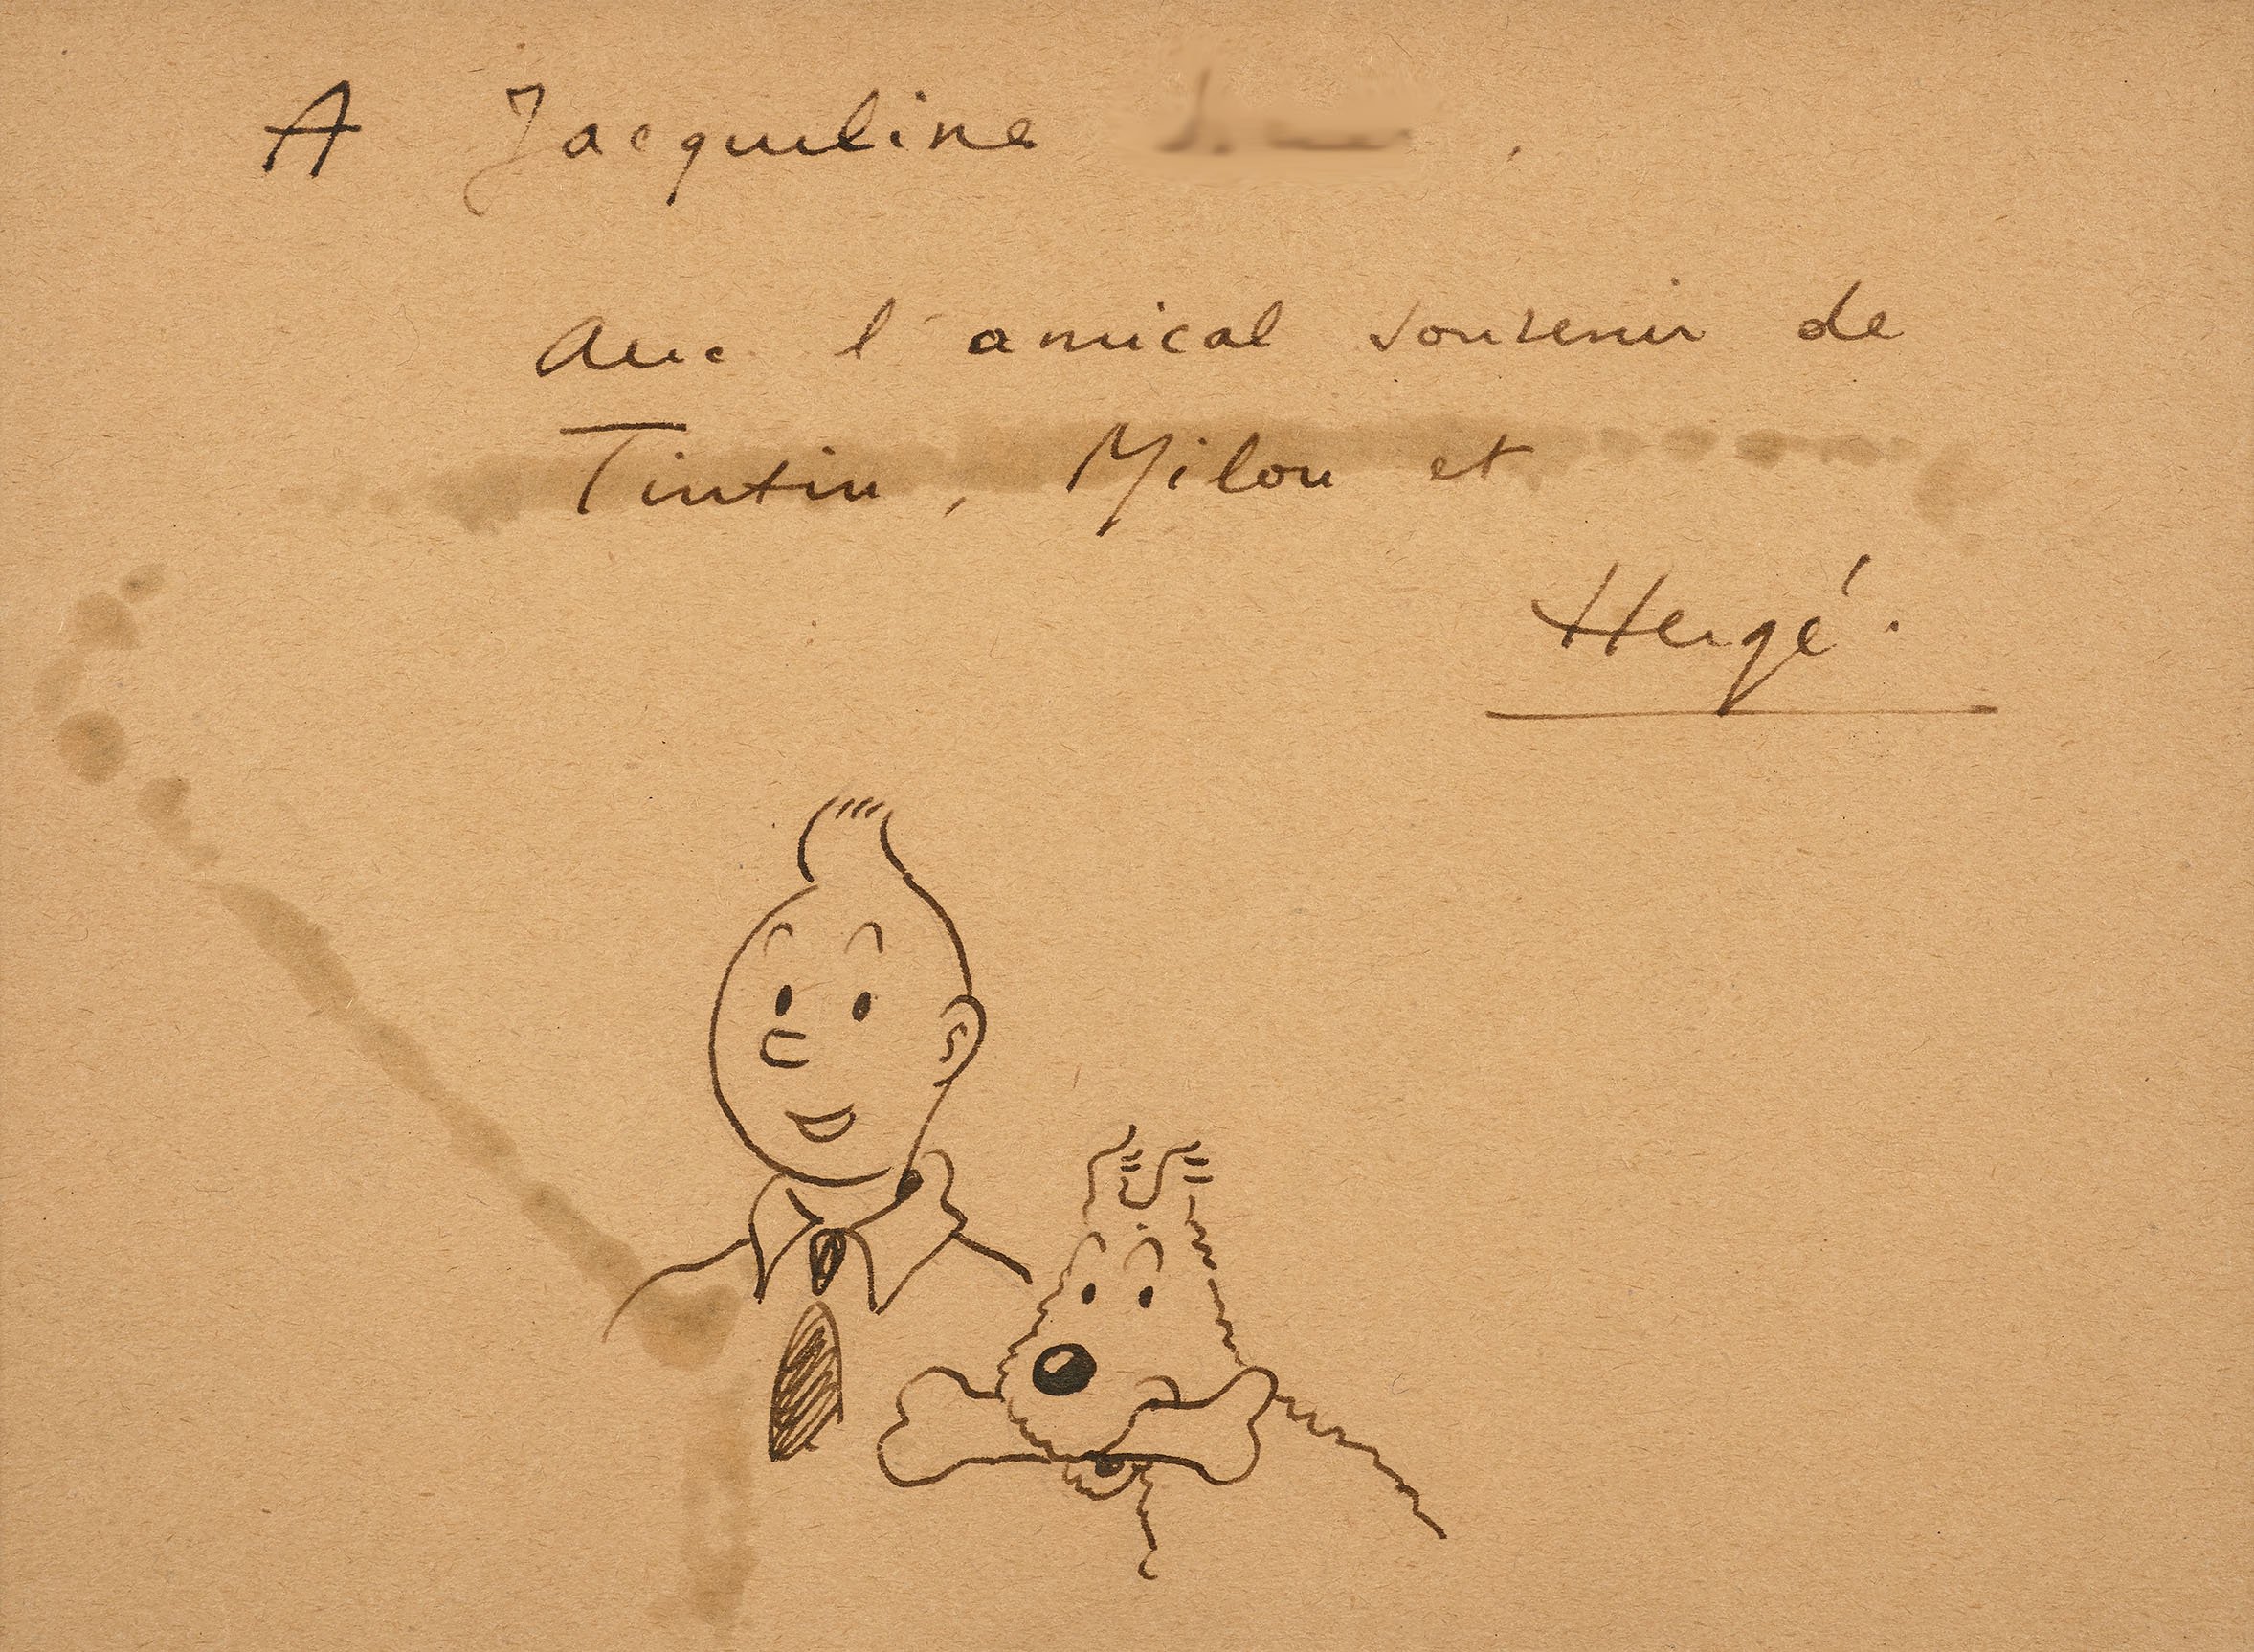 A Jacqueline
avec l'amical souvenir de
Tintin, Milou et
Hergé.